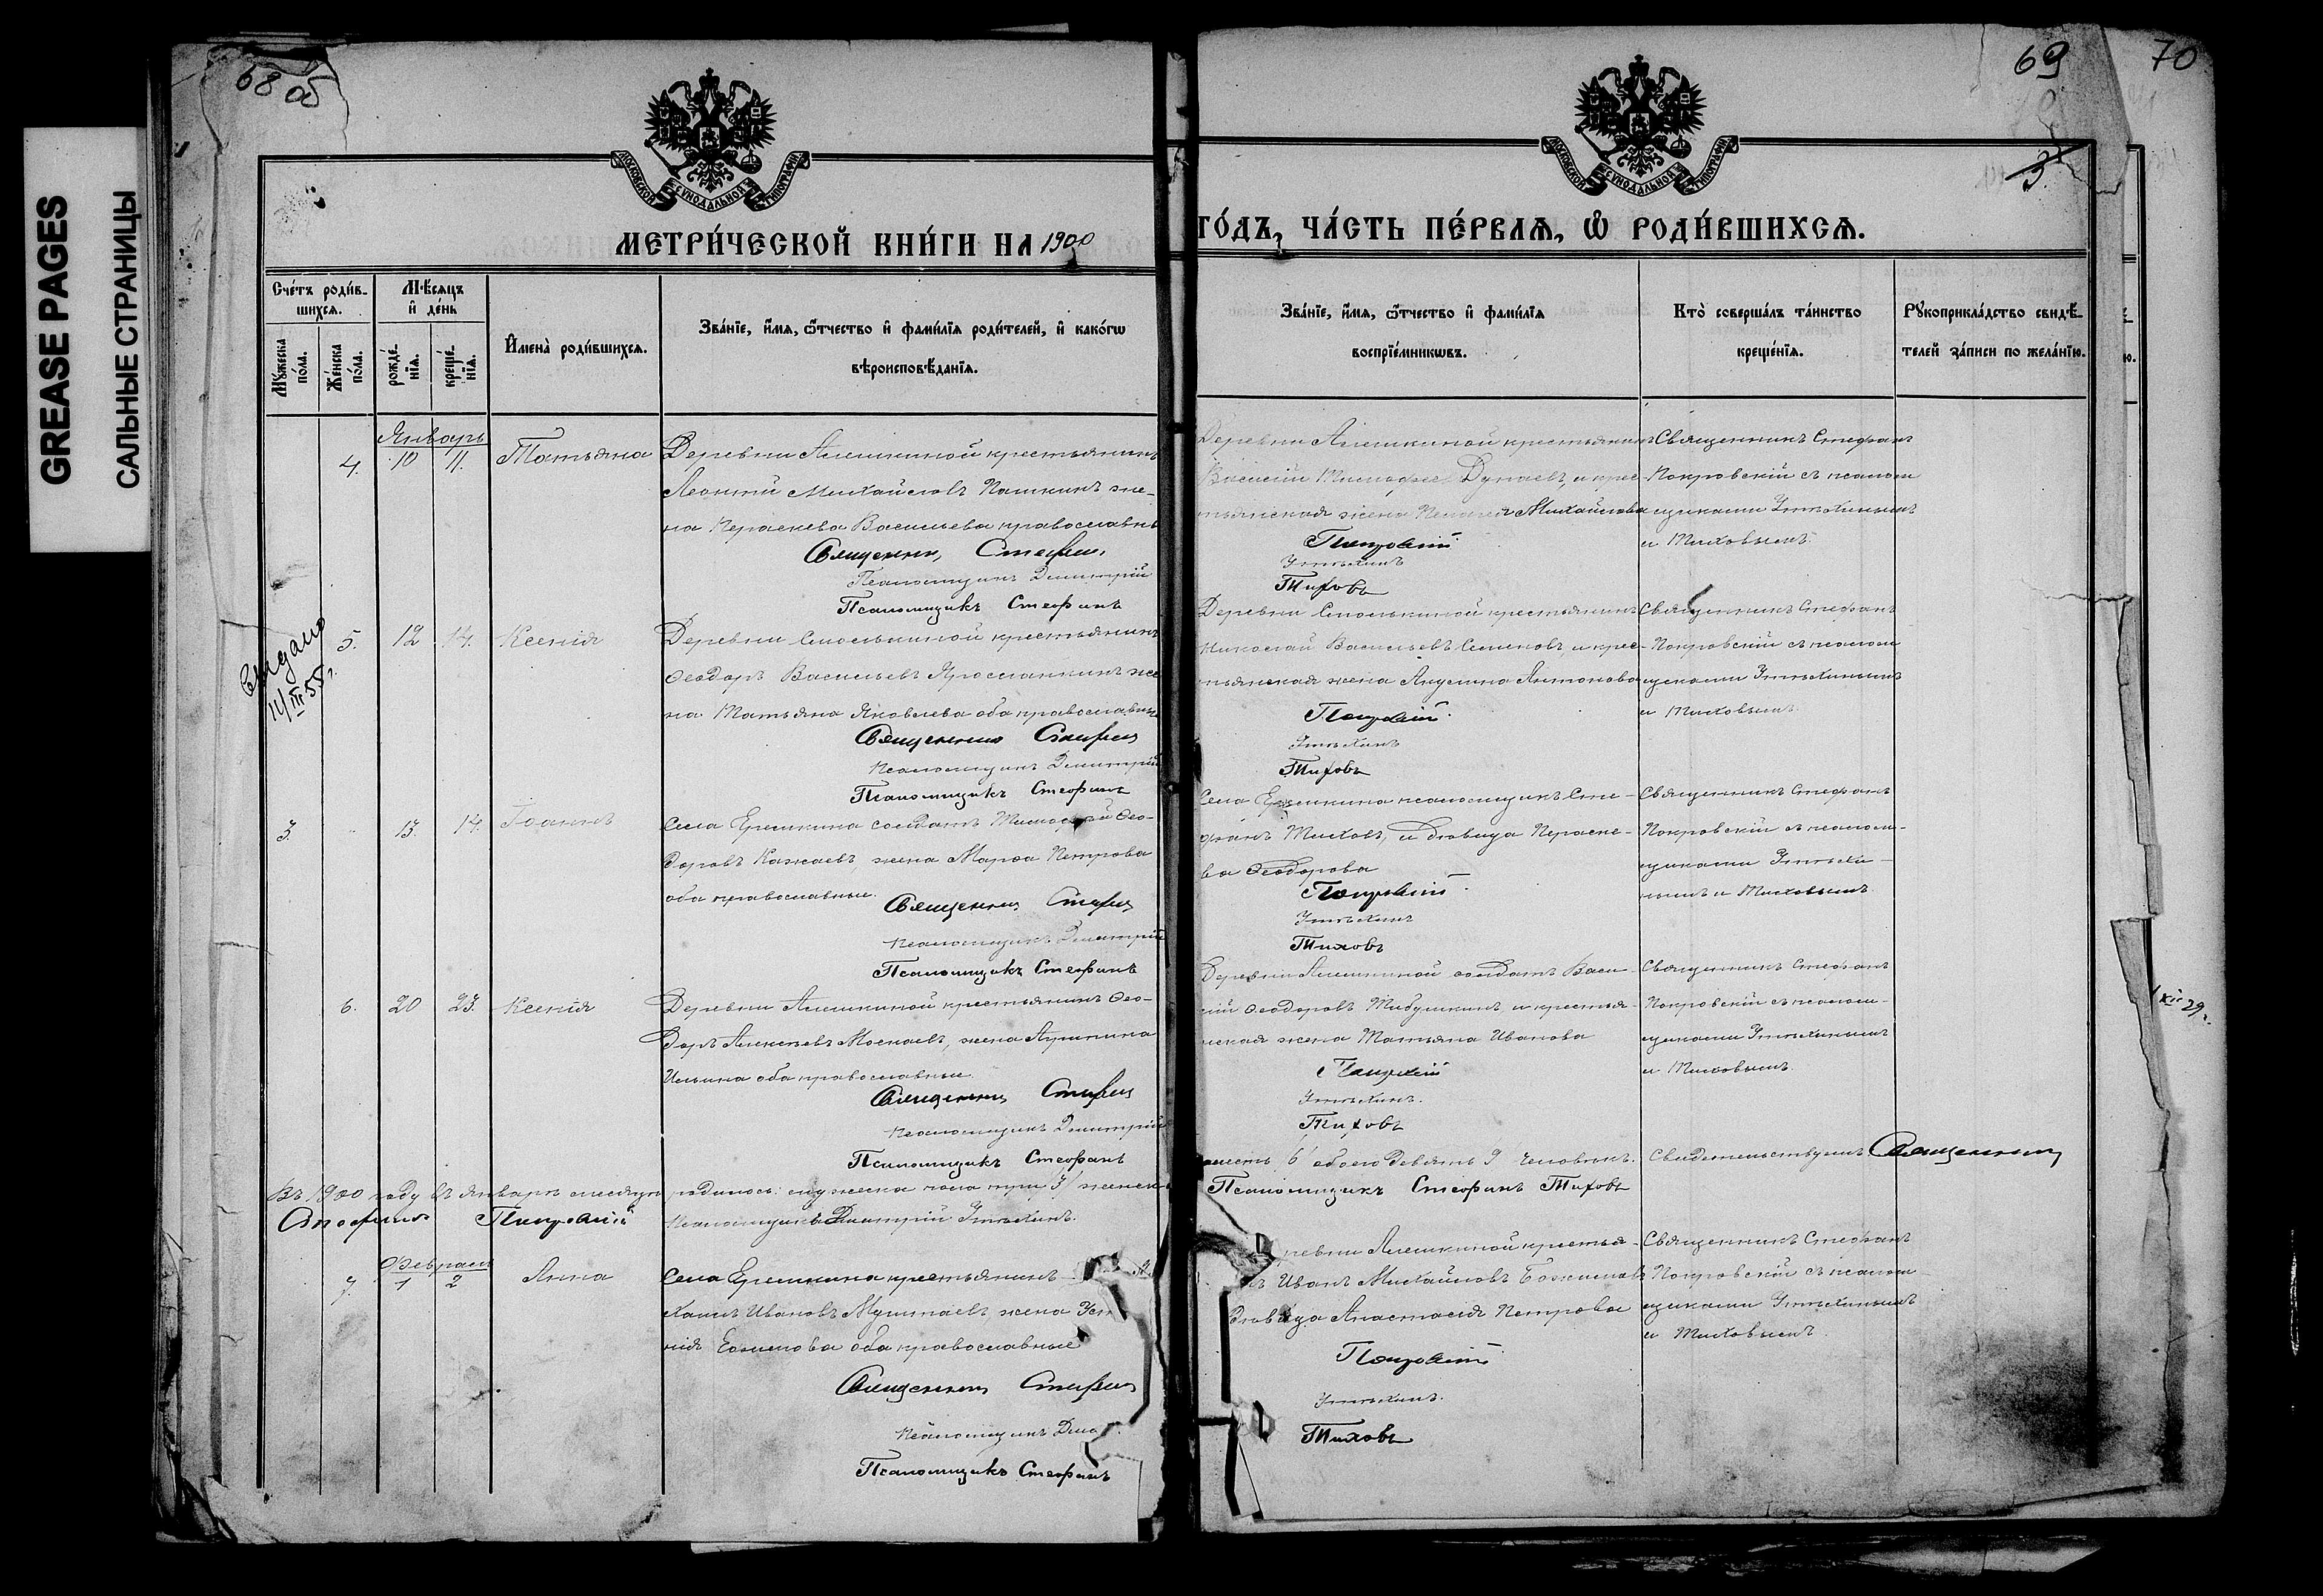 GREASE PAGES
САЛЬНЫЕ СТРАНИЦЫ
68 об
69
70
3
МОСКОВСКОЙ СѴНОДАЛЬНОЙ ТИПОГРАФІИ
МОСКОВСКОЙ СѴНОДАЛЬНОЙ ТИПОГРАФІИ
МЕТРИ́ЧЕСКОЙ КНИ́ГИ НА 1900
ГО́ДЪ, ЧА́СТЬ ПЕ́РВАѦ, Ѿ РОДИ́ВШИХСѦ.
Сче́тъ роди́в-
шихсѧ.
Мꙋжеска по́ла.
Же́нска по́ла.
Мѣ́сѧцъ
и҆ де́нь
рожде́-
нїѧ.
креще́-
нїѧ.
И҆мена̀ роди́вшихсѧ.
Зва́нїе, и҆́мѧ, ѻ҆́тчество и҆ фами́лїѧ роди́телей, и҆ како́гѡ
вѣроисповѣ́данїѧ.
Зва́нїе, и҆́мѧ, ѻ҆́тчество и҆ фами́лїѧ
воспрїе́мникѡвъ.
Кто̀ соверша́лъ та́инство
креще́нїѧ.
Рꙋкоприкла́дство свидѣ́-
телей за́писи по жела́нїю.
Январь
4. 10 11. Татьяна
Деревни Алешкиной крестьянинъ
Леонтій Михайловъ Пашкинъ же-
на Параскева Васильева православн
Священник Стефан
Псаломщикъ Димитрій
Псаломщикъ Стефанъ
Деревни Алешкиной крестьянинъ
Василий Дунаевъ, и крес-
тьянская жена Михайлова
Покровскій
Утѣхинъ
Тиховъ
Священникъ Стефанъ
Покровскій съ псалом
щиками Утѣхинымъ
и Тиховымъ.
Выдано
11/III 55 г.
5. 12 14. Ксенія
Деревни крестьянинъ
Ѳеодоръ Васильевъ же
на Татьяна Яковлева оба православны
Священник Стефан
Псаломщикъ Димитрій
Псаломщикъ Стефанъ
Деревни крестьянинъ
Николай Васильевъ Семеновъ, и крес-
тьянская жена Акулина Антонова
Покровскій
Утѣхинъ
Тиховъ
Священникъ Стефанъ
Покровскій съ псалом
щиками Утѣхинымъ
и Тиховымъ.
3. 13. 14. Іоаннъ
Села Ерешкина солдатъ Тимофей Ѳео-
доровъ Кажаевъ, жена Марѳа Петрова
оба православные.
Священник Стефан
Псаломщикъ Димитрій
Псаломщикъ Стефанъ
Села Ерешкина псаломщикъ Сте-
фанъ Тиховъ, и дѣвица Параске-
ва Ѳеодорова
Покровскій
Утѣхинъ
Тиховъ
Священникъ Стефанъ
Покровскій съ псалом-
щиками Утѣхи-
нымъ и Тиховымъ
6. 20 23. Ксенія
Деревни Алешкиной крестьянинъ Ѳео-
доръ Алексѣевъ жена
Ильина оба православные.
Священник Стефан
Псаломщикъ Димитрій
Псаломщикъ Стефанъ
Деревни Алешкиной солдатъ Васи-
лій Ѳеодоровъ и крестья-
нская жена Татьяна Иванова
Покровскій
Утѣхинъ.
Тиховъ
Священникъ Стефанъ
Покровскій съ псалом-
щиками Утѣхинымъ
и Тиховымъ.
XII 29 г.
Въ 1900 году въ Январѣ мѣсяцѣ родилось: мужеска пола три 3/ женск
шесть 6 обоего девять 9 человѣкъ. Свидетельствуемъ Священник
Стефанъ Покровскій Псаломщикъ Димитрій Утѣхинъ.
Псаломщикъ Стефанъ Тиховъ
Февраль
7. 1 2 Анна
Села Ерешкина крестьянинъ
хаилъ Ивановъ жена
нія оба православные
Священник Стефан
Псаломщикъ Дим
Псаломщикъ Стефанъ
ревни Алешкиной крестья-
нъ Иванъ Михайловъ
дѣвица Анастасія Петрова
Покровскій
Утѣхинъ.
Тиховъ
Священникъ Стефанъ
Покровскій съ псалом
щиками Утѣхинымъ
и Тиховымъ.